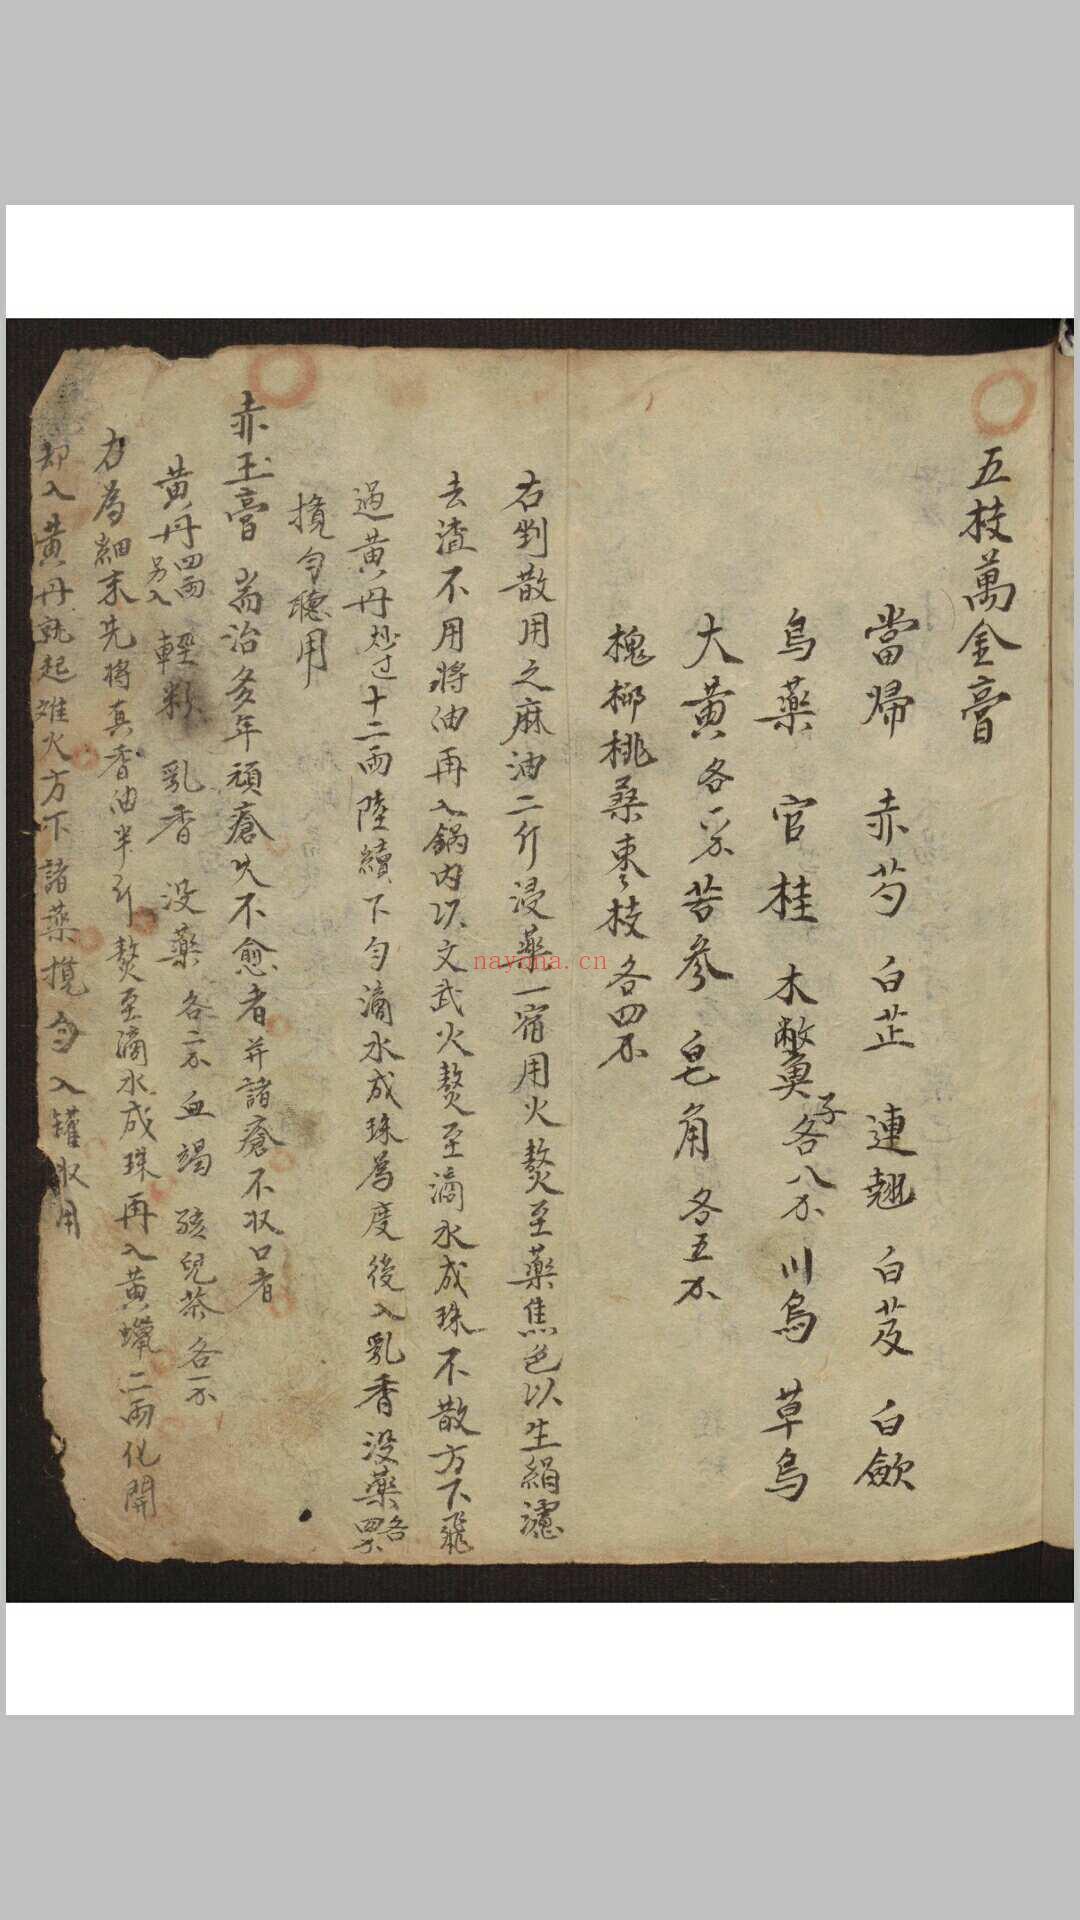 五枝萬金膏
當歸 赤芍 白芷 連翹 白芨 白歛
烏藥 官桂 木鱉子各八不 川烏 草烏
大黃各一不 苦參 皂角 各五不
槐柳桃桑枣枝各四不
右剉散用之麻油二斤浸藥一宿用火熬至藥焦色以生絹濾
去渣不用將油再入鍋內以文武火熬至滴水成珠不散方下飛
過黃丹炒过十二兩陸續下勻滴水成珠為度後入乳香没藥各四不
攪勻聽用
赤玉膏 耑治多年頑瘡久不愈者并諸瘡不収口者
黃丹四兩另入 輕粉 乳香 没藥 各二不 血竭 孩兒茶各一不
右為細末先將真香油半斤熬至滴水成珠再入黃蠟二兩化開
却入黃丹就起难火方下諸藥攪勻入罐収用
nayona.cn